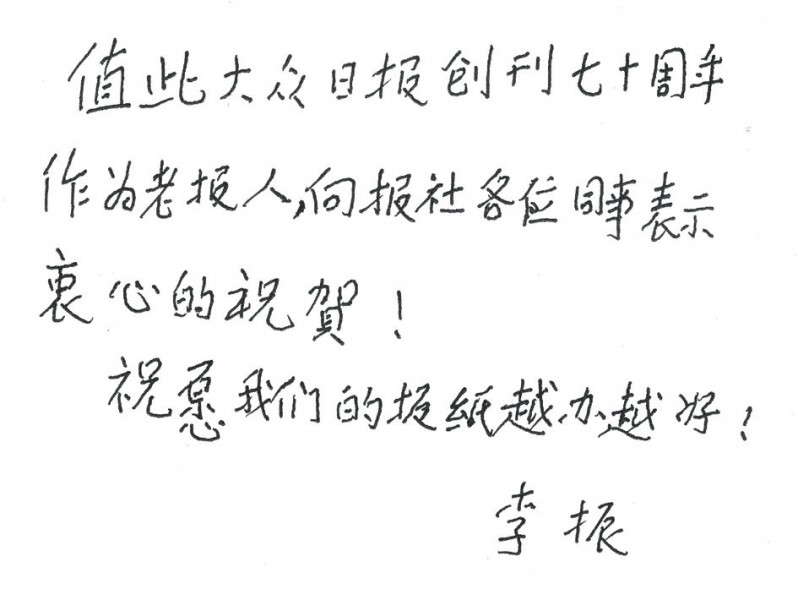 值此大众日报创刊七十周年
作为老报人,向报社各位同事表示
衷心的祝賀!
祝愿我们的报纸越办越好!
李振